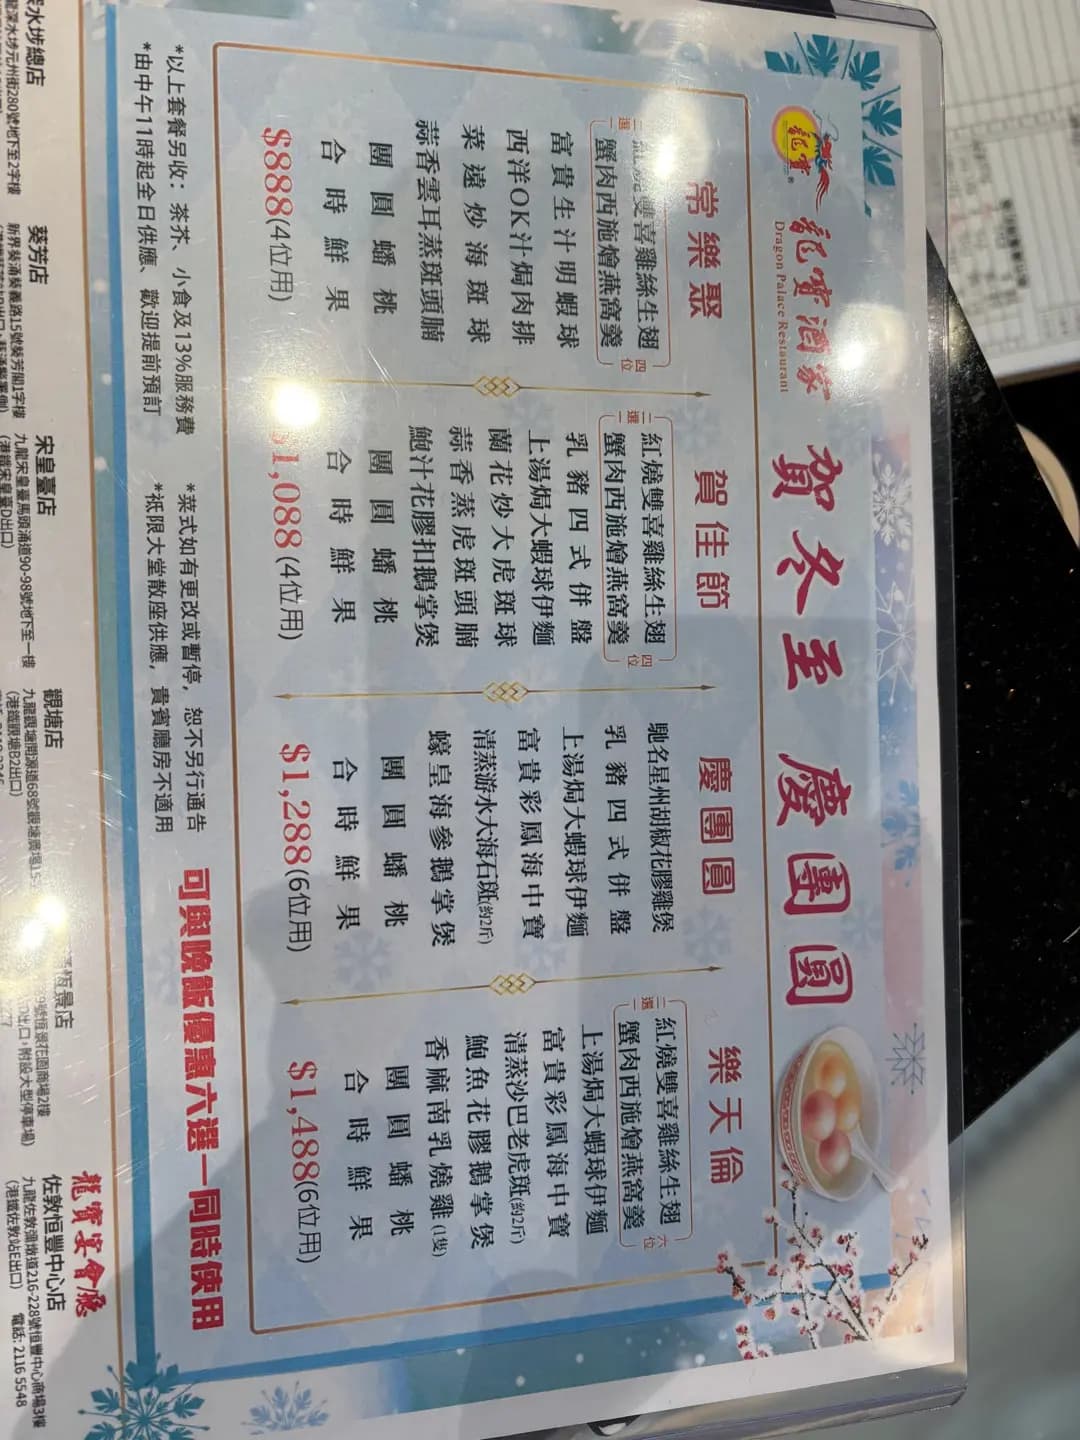 龍寶
龍寶酒家
Dragon Palace Restaurant
賀冬至 慶團圓
常樂聚
二選一
紅燒雙喜雞絲生翅
蟹肉西施燴燕窩羹
四位
富貴生汁明蝦球
西洋OK汁焗肉排
菜遠炒海斑球
蒜香雲耳蒸斑頭腩
團圓蟠桃
合時鮮果
$888(4位用)
賀佳節
二選一
紅燒雙喜雞絲生翅
蟹肉西施燴燕窩羹
四位
乳豬四式併盤
上湯焗大蝦球伊麵
蘭花炒大虎斑球
蒜香蒸虎斑頭腩
鮑汁花膠扣鵝掌煲
團圓蟠桃
合時鮮果
$1,088(4位用)
慶團圓
馳名星州胡椒花膠雞煲
乳豬四式併盤
上湯焗大蝦球伊麵
富貴彩鳳海中寶
清蒸游水大海石斑(約2斤)
蠔皇海參鵝掌煲
團圓蟠桃
合時鮮果
$1,288(6位用)
樂天倫
二選一
紅燒雙喜雞絲生翅
蟹肉西施燴燕窩羹
六位
上湯焗大蝦球伊麵
富貴彩鳳海中寶
清蒸沙巴老虎斑(約2斤)
鮑魚花膠鵝掌煲
香麻南乳燒雞(1隻)
團圓蟠桃
合時鮮果
$1,488(6位用)
*以上套餐另收：茶芥、小食及13%服務費
*由中午11時起全日供應、歡迎提前預訂
*菜式如有更改或暫停，恕不另行通告
*祗限大堂散座供應，貴賓廳房不適用
可與晚飯優惠六選一同時使用
深水埗總店
龍深水埗元州街280號地下至2字樓
葵芳店
新界葵涌葵義路15號葵芳閣1字樓
宋皇臺店
九龍宋皇臺馬頭涌道90-98號地下至一樓
(港鐵宋皇臺D出口)
觀塘店
九龍觀塘開源道68號觀塘廣場
(港鐵觀塘B2出口)
恆景店
號恆景花園商場2樓
出口，附設大型停車場)
龍寶宴會廳
佐敦恒豐中心店
九龍佐敦彌敦道216-228號恒豐中心商場3樓
(港鐵佐敦站E出口) 電話: 2116 5548